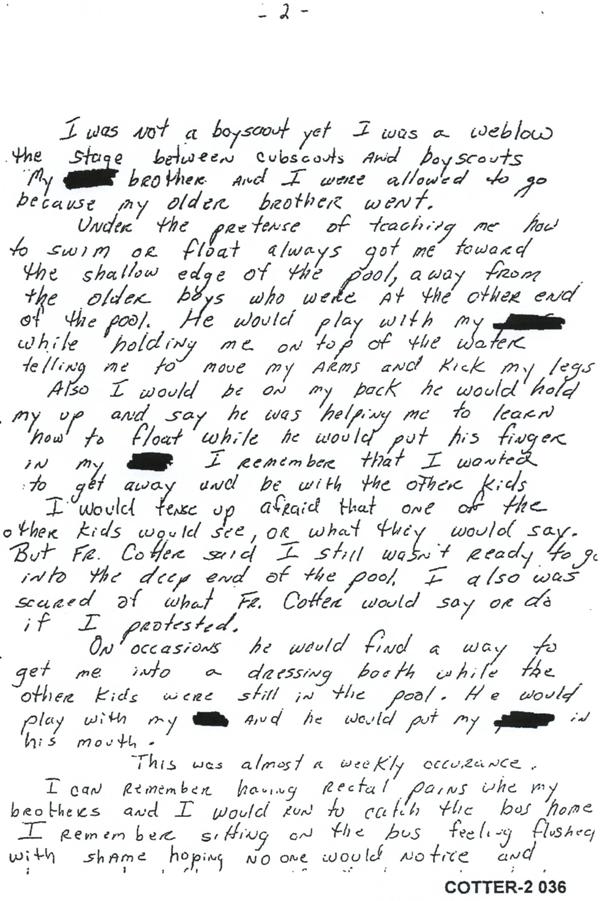 - 2 -
I was not a boyscout yet I was a weblow
the stage between cubscouts and boyscouts
My brother and I were allowed to go
because my older brother went.
Under the pretense of teaching me how
to swim or float always got me toward
the shallow edge of the pool, away from
the older boys who were at the other end
of the pool. He would play with my
while holding me on top of the water
telling me to move my arms and kick my legs
Also I would be on my back he would hold
my up and say he was helping me to learn
how to float while he would put his finger
in my I remember that I wanted
to get away and be with the other kids
I would tense up afraid that one of the
other kids would see, or what they would say.
But Fr. Cotter said I still wasn't ready to go
into the deep end of the pool. I also was
scared of what Fr. Cotter would say or do
if I protested.
On occasions he would find a way to
get me into a dressing booth while the
other kids were still in the pool. He would
play with my and he would put my in
his mouth.
This was almost a weekly occurance.
I can remember having rectal pains whe my
brothers and I would run to catch the bus home
I remember sitting on the bus feeling flushed
with shame hoping no one would notice and
COTTER-2 036